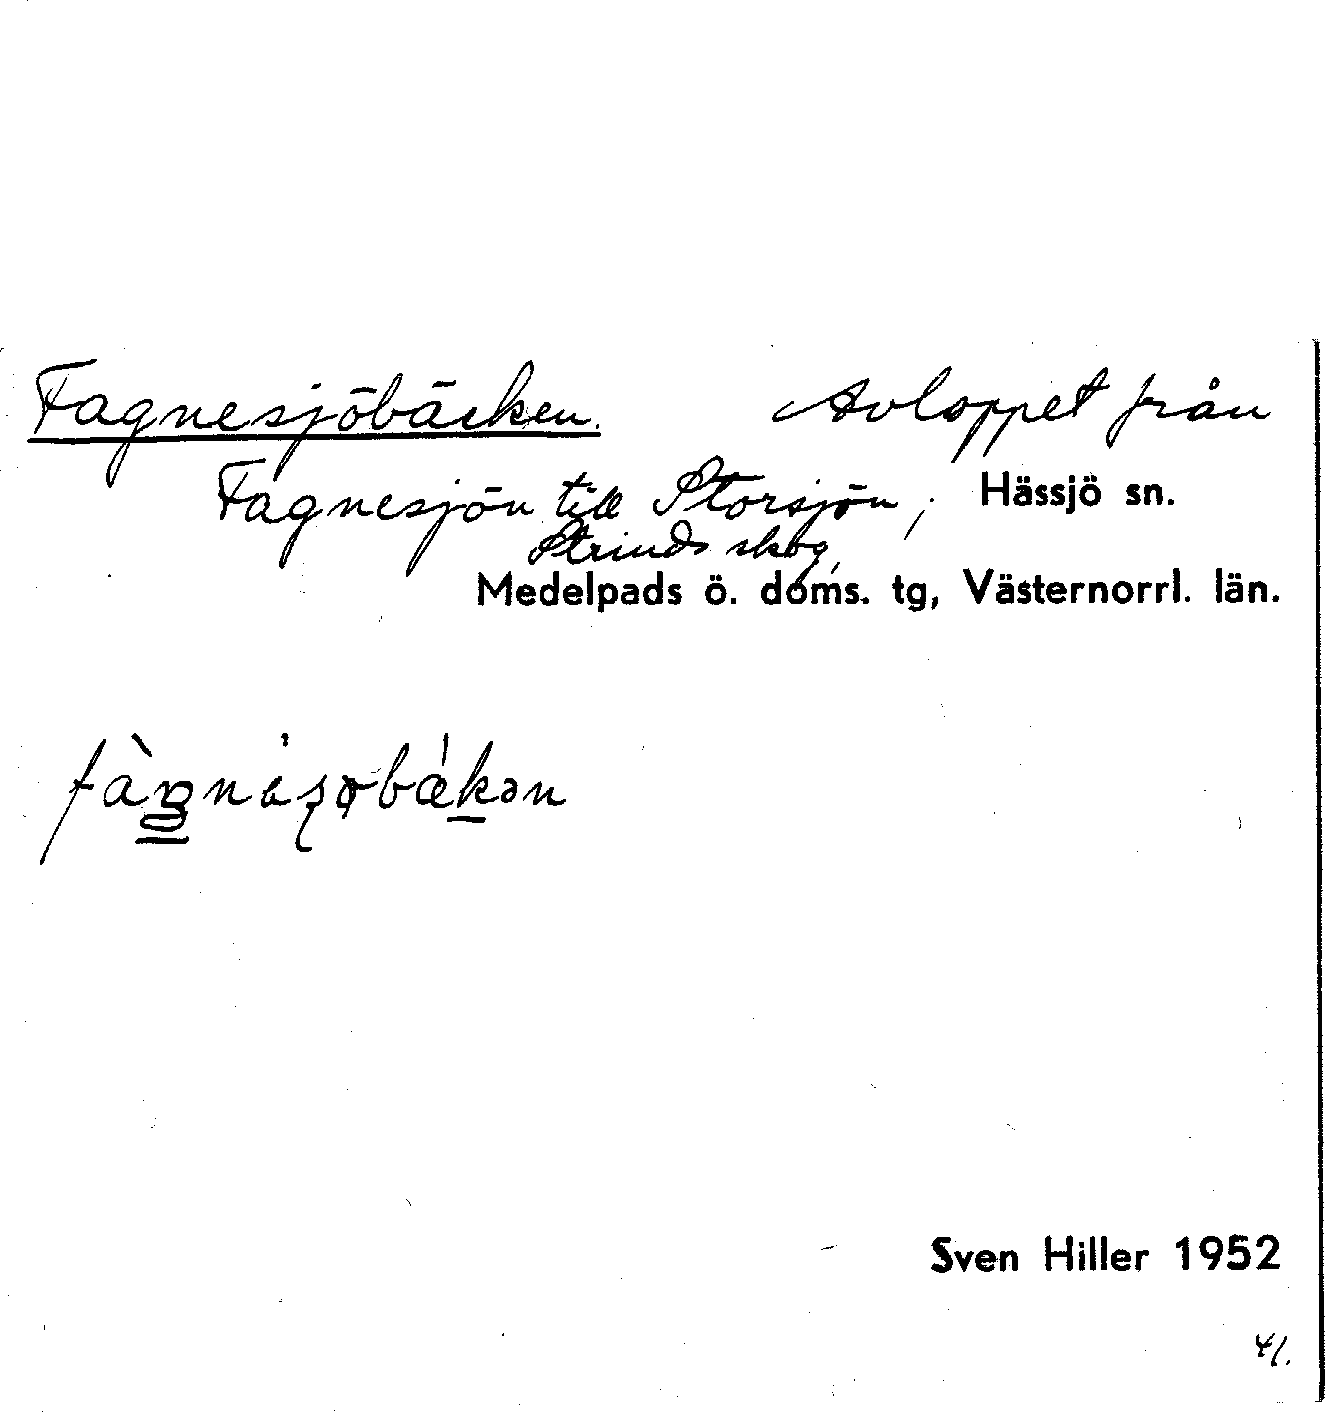 Fagnesjöbäcken. Avloppet från
Fagnesjön till Storsjön, Hässjö sn.
Strinds skog,
Medelpads ö. doms. tg, Västernorrl. län.
Sven Hiller 1952
41.